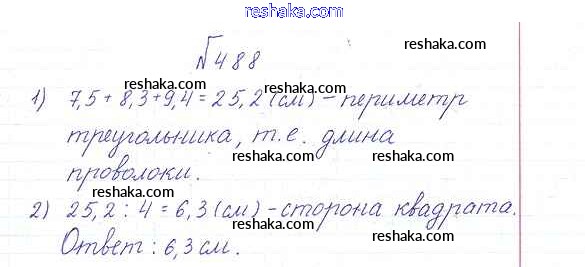 reshaka.com
№488
reshaka.com
reshaka.com
1) 7,5+8,3+9,4=25,2(см)-периметр
reshaka.com
треугольника, т.е. длина
проволоки.
reshaka.com
2) 25,2:4=6,3(см)-сторона квадрата.
reshaka.com
Ответ: 6,3 см.
reshaka.com